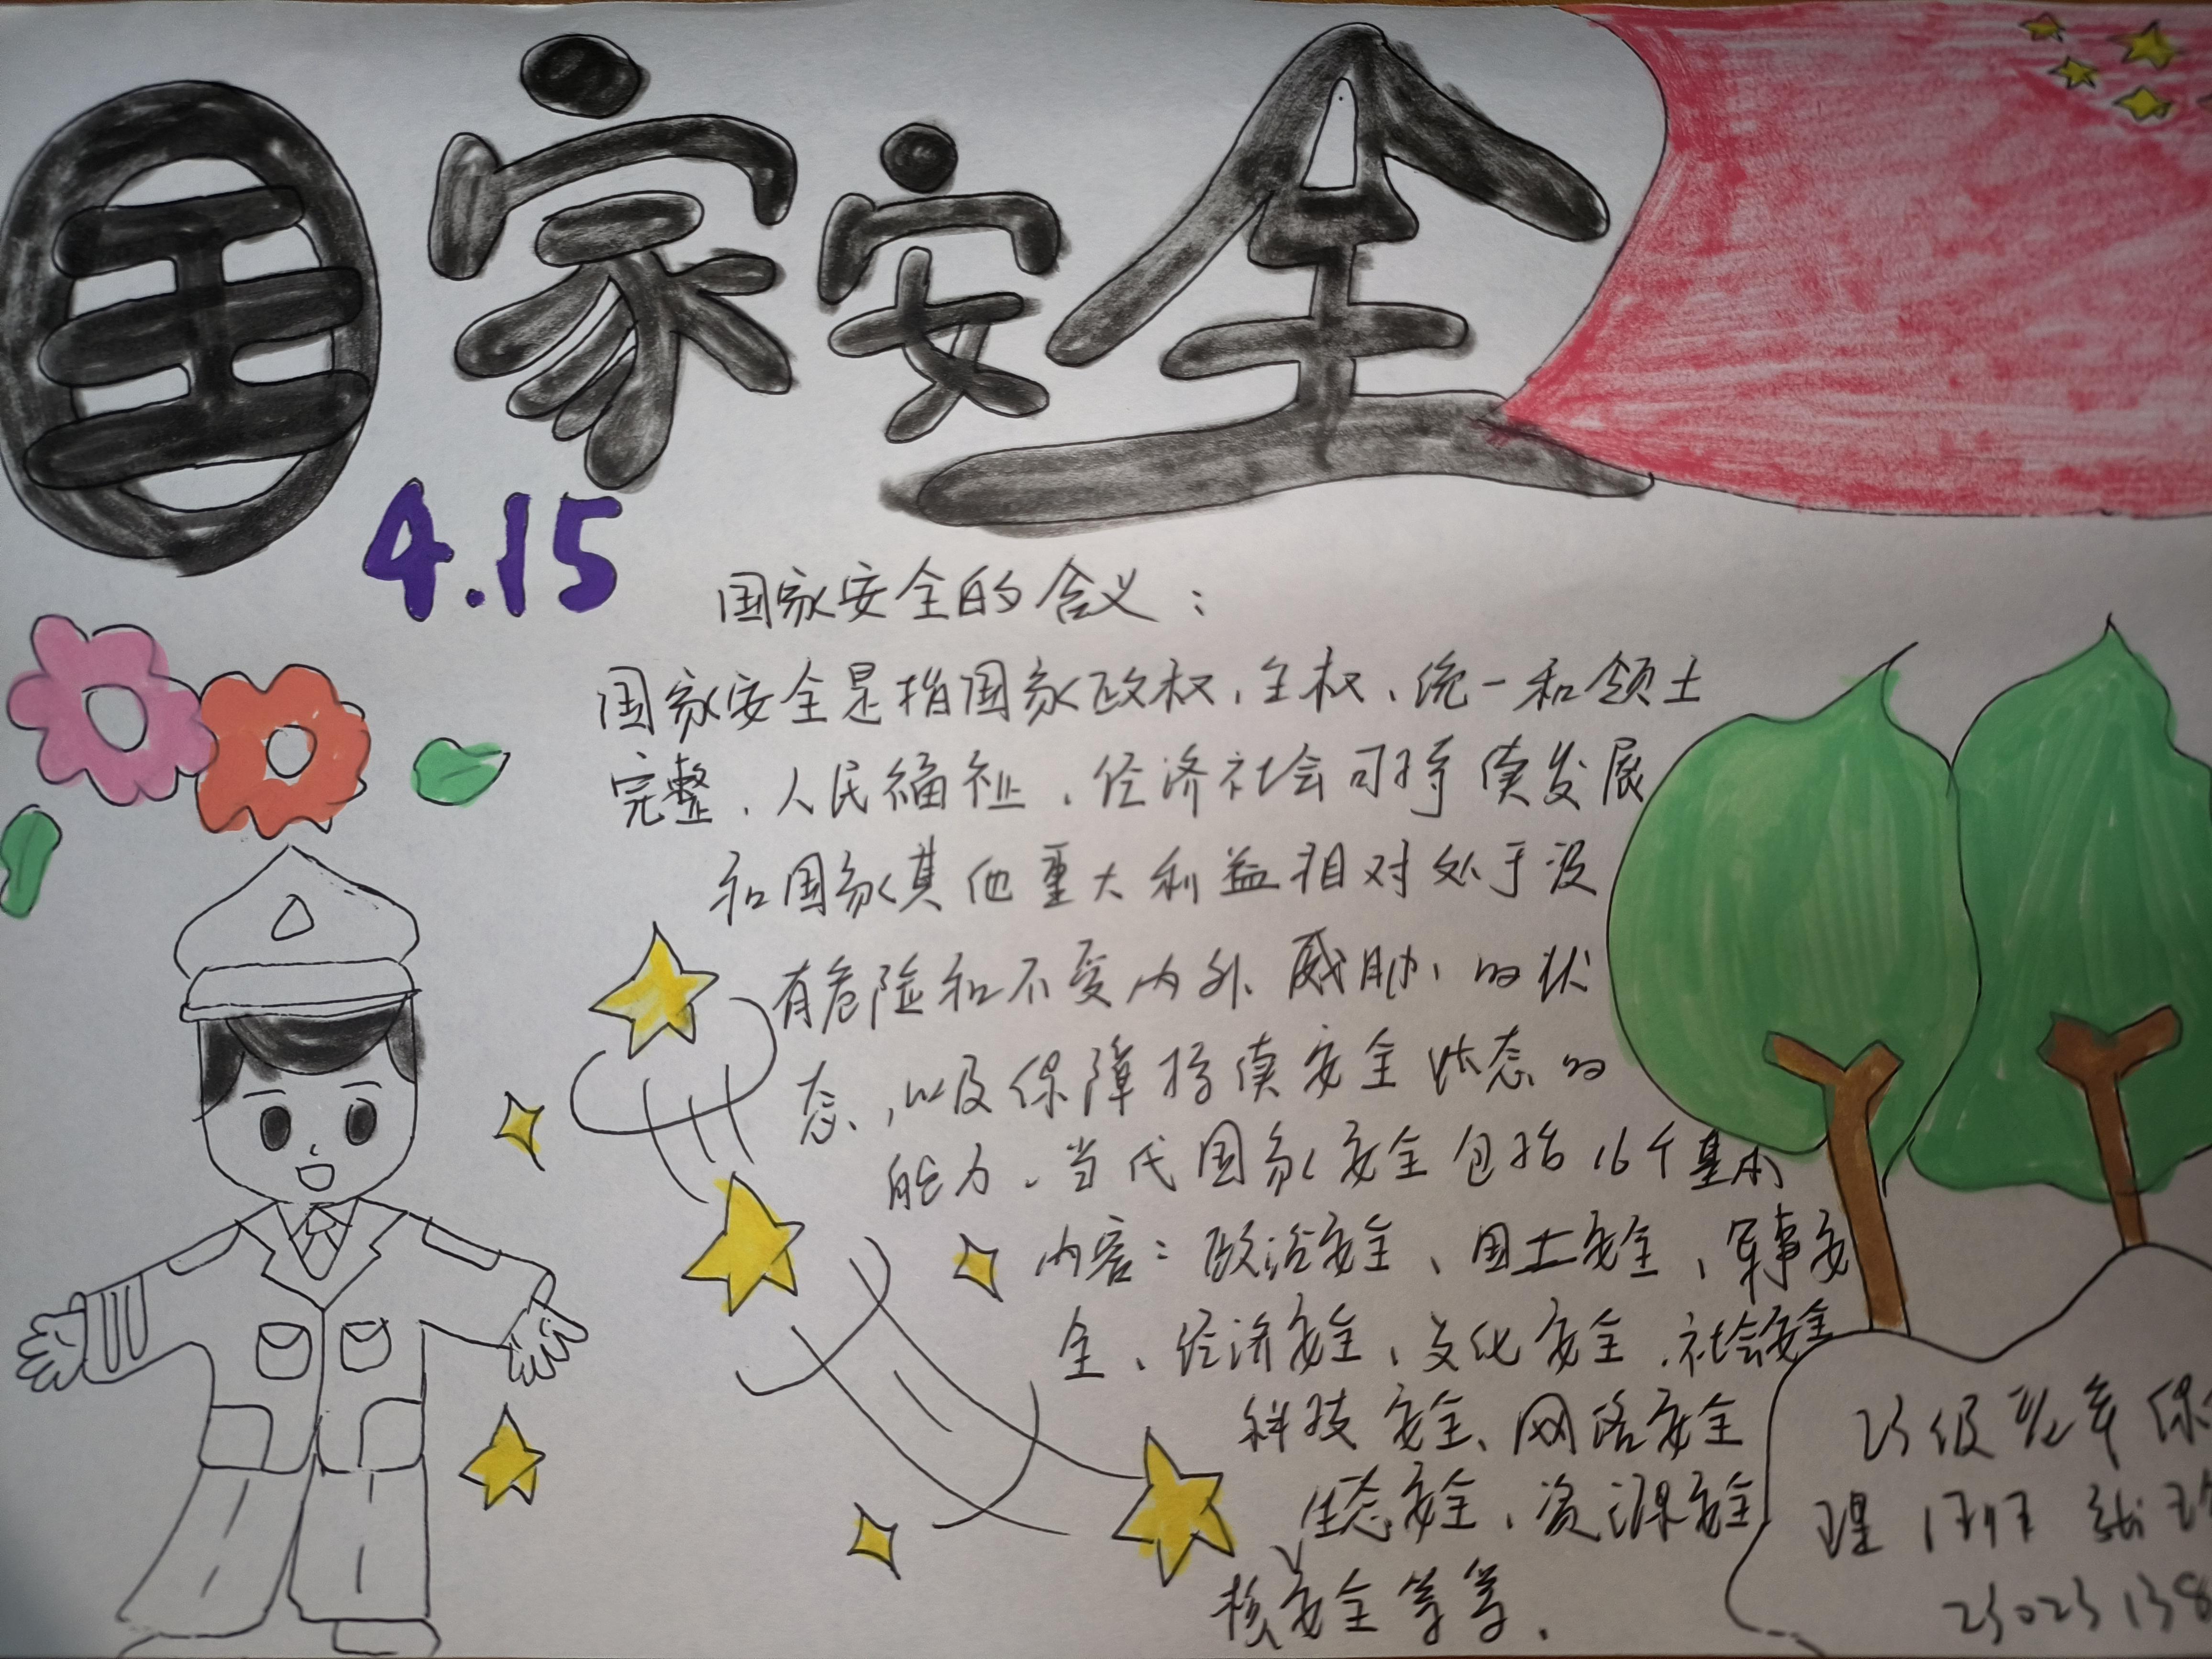 国家安全
4.15
国家安全的含义：
国家安全是指国家政权、主权、统一和领土
完整、人民福祉、经济社会可持续发展
和国家其他重大利益相对处于没
有危险和不受内外威胁的状
态，以及保障持续安全状态的
能力。当代国家安全包括16个基本
内容：政治安全、国土安全、军事安
全、经济安全、文化安全、社会安全
科技安全、网络安全
生态安全、资源安全
核安全等等.
23级
理1班
23023138